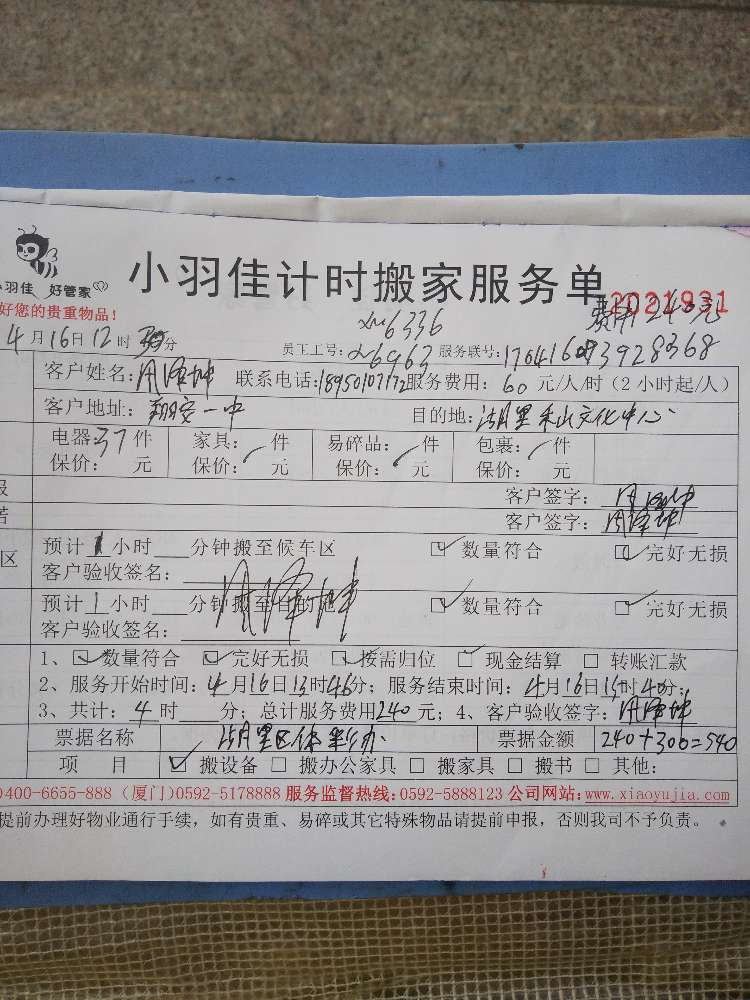 小羽佳 好管家
小羽佳计时搬家服务单
2021931
费用240元
好您的贵重物品!
4月16日12时30分
xm6336
员工工号:xm6963 服务联号:170416083928368
客户姓名:周泽坤 联系电话:18950107172 服务费用:60元/人/时(2小时起/人)
客户地址:翔安一中 目的地:湖里禾山文化中心
电器:37件 家具: 件 易碎品: 件 包裹: 件
保价: 元 保价: 元 保价: 元 保价: 元
客户签字:周泽坤
客户签字:周泽坤
区 预计1小时___分钟搬至候车区 ☑数量符合 ☑完好无损
客户验收签名:
预计1小时___分钟搬至目的地 ☑数量符合 ☑完好无损
客户验收签名:周泽坤
1、☑数量符合 ☑完好无损 ☑按需归位 ☑现金结算 □转账汇款
2、服务开始时间:4月16日13时46分;服务结束时间:4月16日15时40分;
3、共计:4时___分;总计服务费用240元;4、客户验收签字:周泽坤
票据名称 湖里区体彩办 票据金额 240+300=540
项 目 ☑搬设备 □搬办公家具 □搬家具 □搬书 □其他:
0400-6655-888(厦门)0592-5178888 服务监督热线:0592-5888123 公司网站:www.xiaoyujia.com
提前办理好物业通行手续,如有贵重、易碎或其它特殊物品请提前申报,否则我司不予负责。